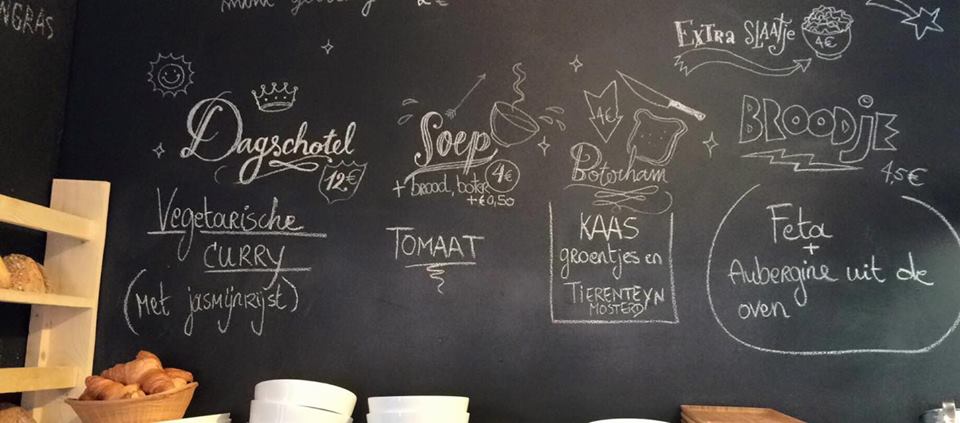 NGRAS
2€
Extra SLAATJE
4€
Dagschotel
12,€
Vegetarische
CURRY
(Met jasmijnrijst)
Soep
4€
+ brood, boter
+€0,50
TOMAAT
4€
Boterham
KAAS
groentjes en
TIERENTEYN
MOSTERD
BROODJE
4,5€
Feta
+
Aubergine uit de
oven